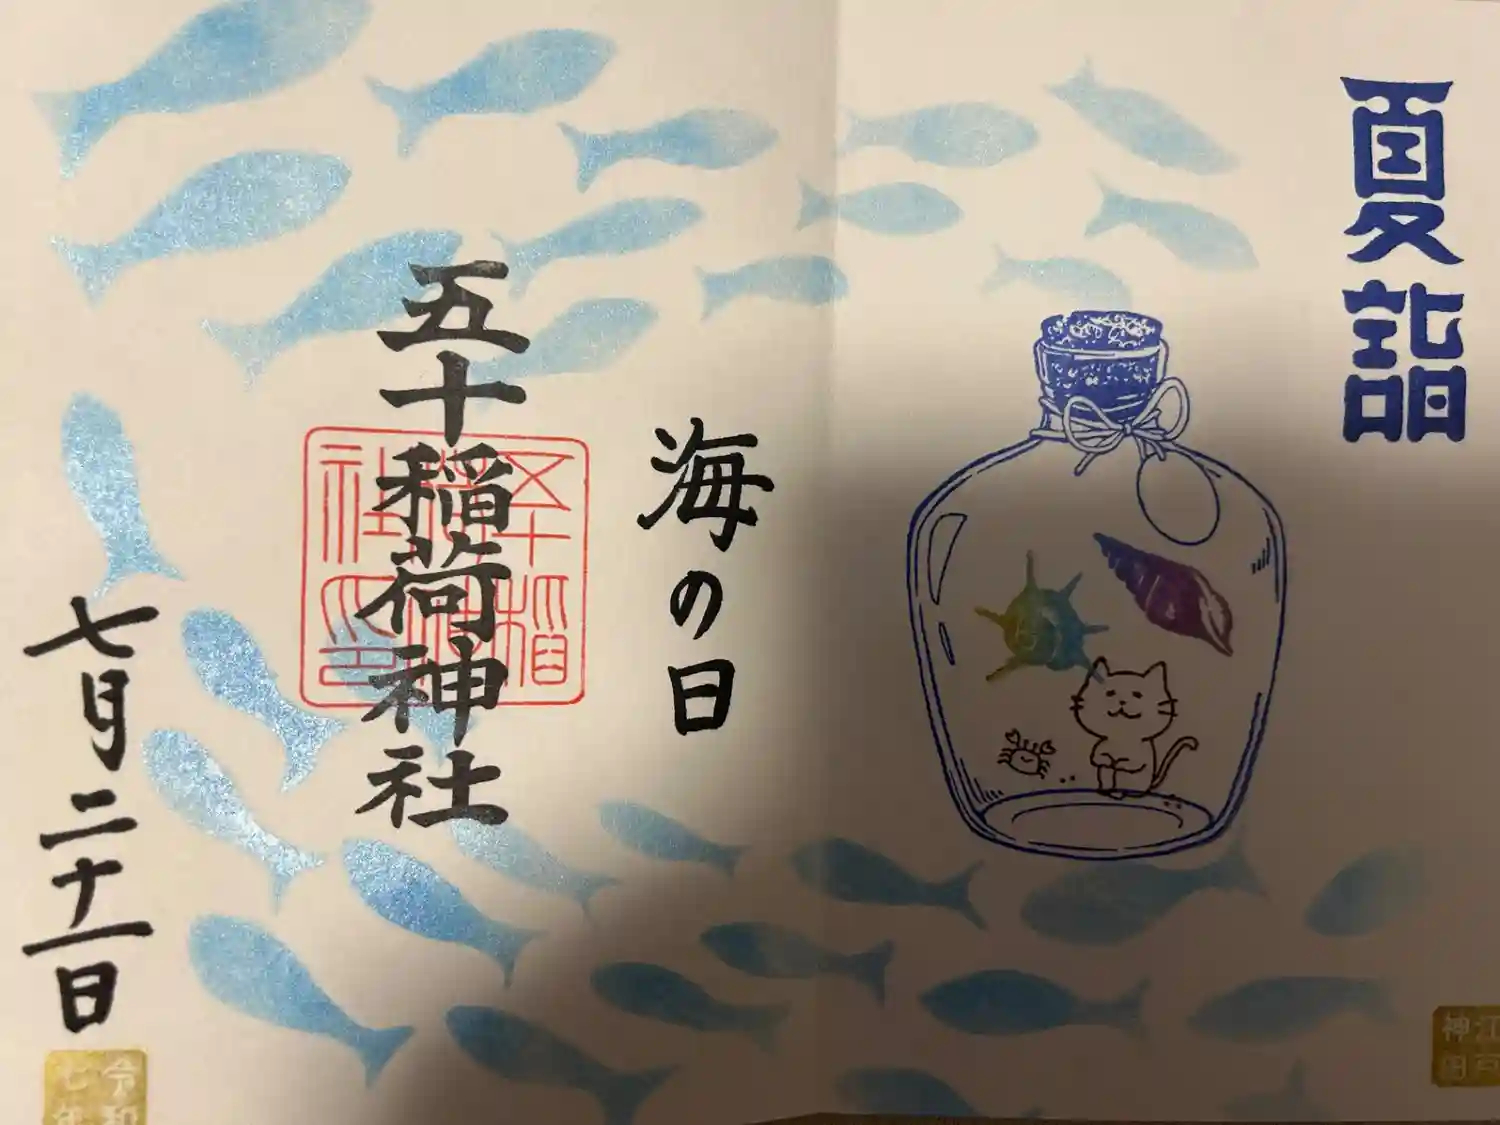 夏詣
海の日
五十稲荷神社
五十稲荷神社印
七月二十一日
令和七年
江戸神田